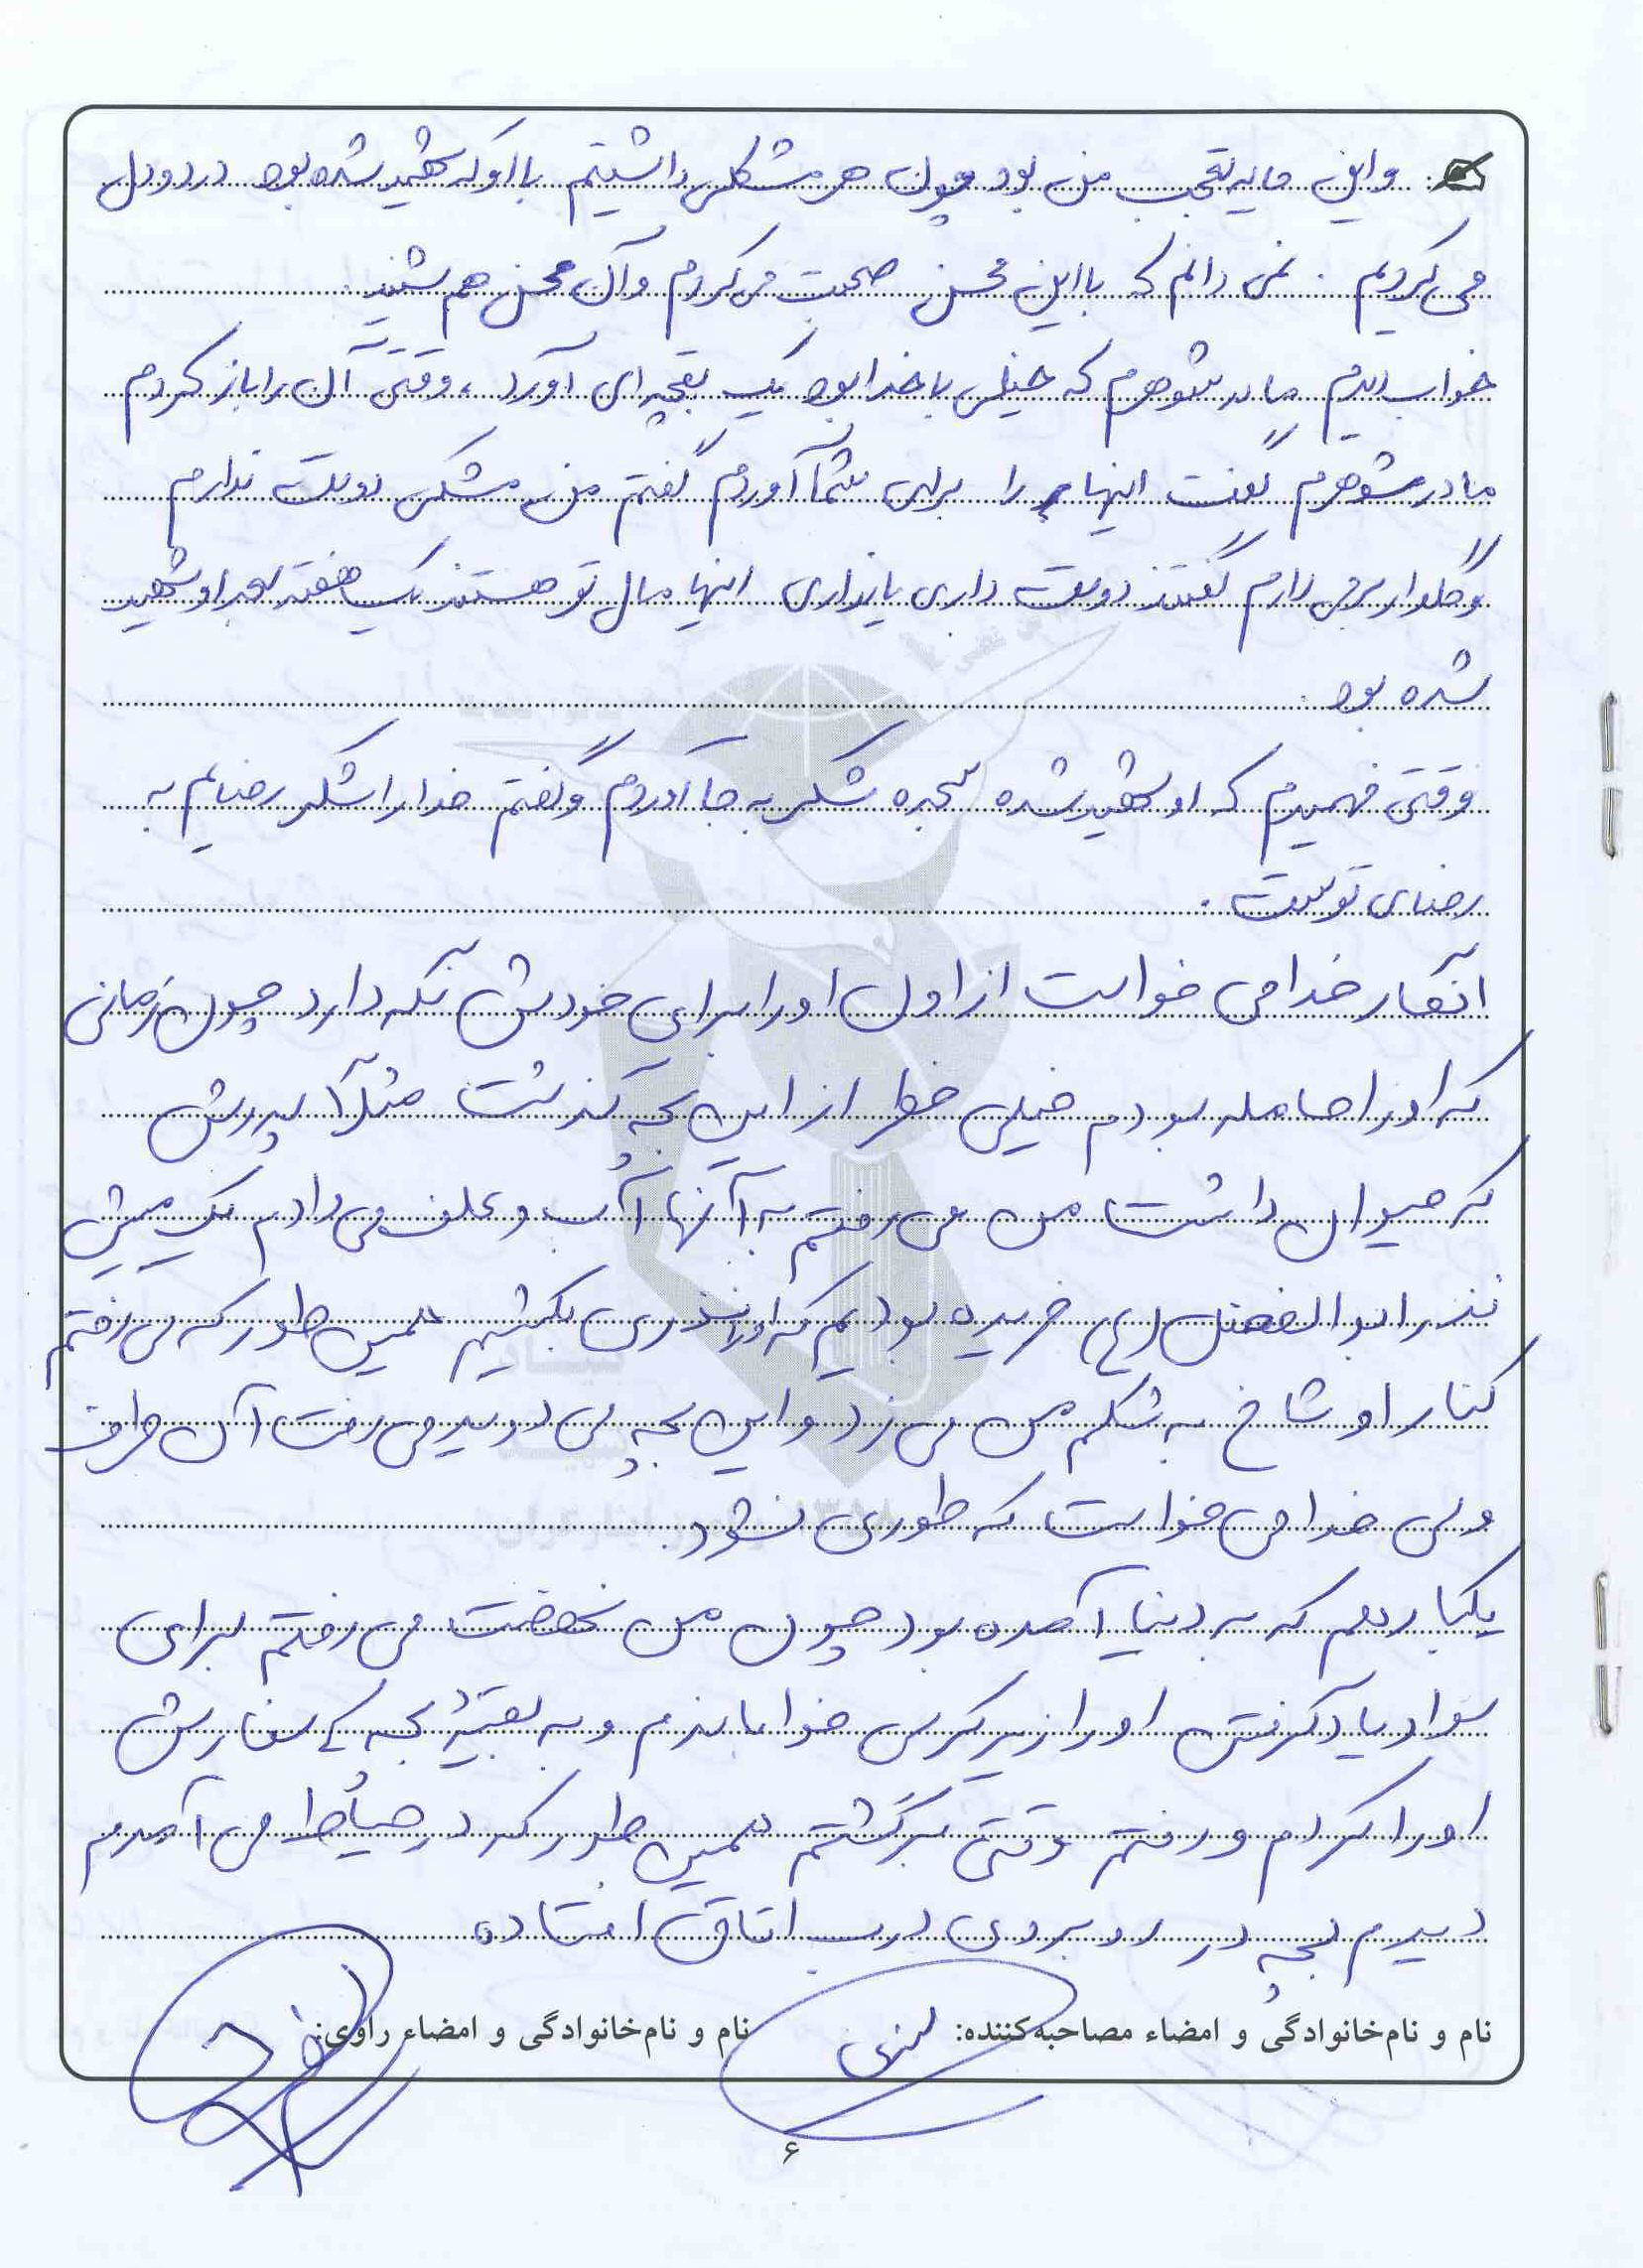 و این مایه تعجب من بود چون هر مشکلی داشتیم با او که شهید شده بود درد و دل
می کردیم . نمی دانم که با این محسن صحبت می کردم و آن محسن هم شنید .
خواب دیدم مادر شوهرم که خیلی با خدا بود یک بقچه ای آورد ، وقتی آن را باز کردم
مادر شوهرم گفت اینها را برای شما آوردم گفتم من مشکی دوست ندارم
و گلدار دارم گفتند دوست داری یا نداری اینها مال تو هستند یک هفته بعد او شهید
شده بود .
وقتی فهمیدم که او شهید شده سجده شکر به جا آوردم و گفتم خدا را شکر رضایم به
رضای توست .
انگار خدا می خواست از اول او را برای خودش نگه دارد چون زمانی
که او را حامله بودم خیلی خطر از این بچه گذشت مثلاً پدرش
که حیوان داشت من می رفتم به آنها آب و علف می دادم یک میش
نذر ابوالفضل (ع) خریده بودیم که او را نذری بکشیم همین طور که می رفتم
کنار او شاخ به شکم من می زد و این بچه می دوید می رفت آن طرف
ولی خدا می خواست که طوری نشود .
یکبار هم که به دنیا آمده بود چون من نهضت می رفتم برای
سواد یاد گرفتن او را زیر کرسی خواباندم و به بقیۀ بچه ها سفارش
او را کردم و رفتم وقتی برگشتم همین طور که در حیاط می آمدم
دیدم بچه در روبروی درب اتاق افتاده
نام و نام‌خانوادگی و امضاء مصاحبه‌کننده:
نام و نام‌خانوادگی و امضاء راوی:
۶